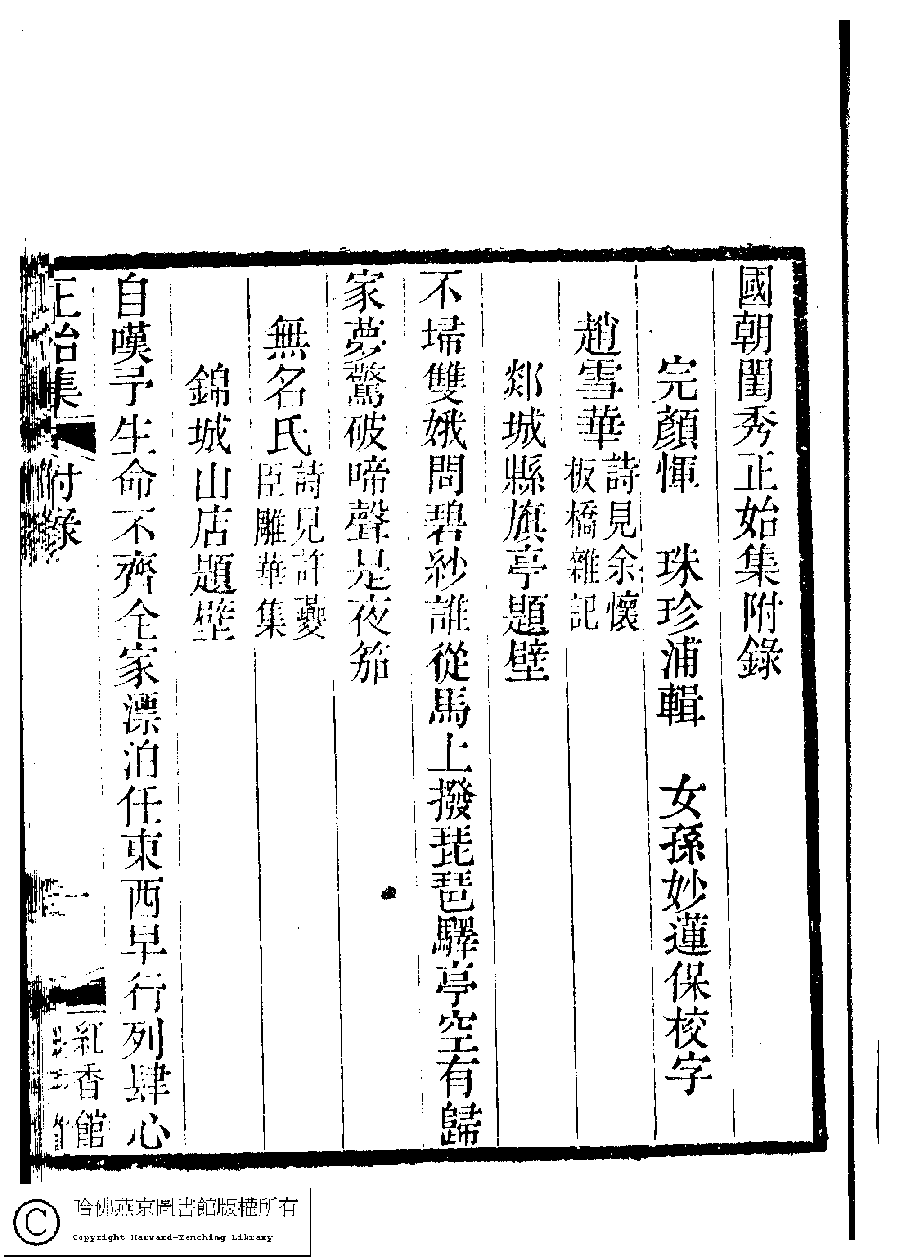 國朝閨秀正始集附錄
完顏惲 珠珍浦輯 女孫妙蓮保校字
趙雪華 詩見余懷
板橋雜記
郯城縣旗亭題壁
不埽雙娥問碧紗誰從馬上撥琵琶驛亭空有歸
家夢驚破啼聲是夜笳
無名氏 詩見許夔
臣雕華集
錦城山店題壁
自嘆予生命不齊全家漂泊任東西早行列肆心
正始集 附錄 一 紅香館
哈佛燕京圖書館版權所有
Copyright Harvard-Yenching Library